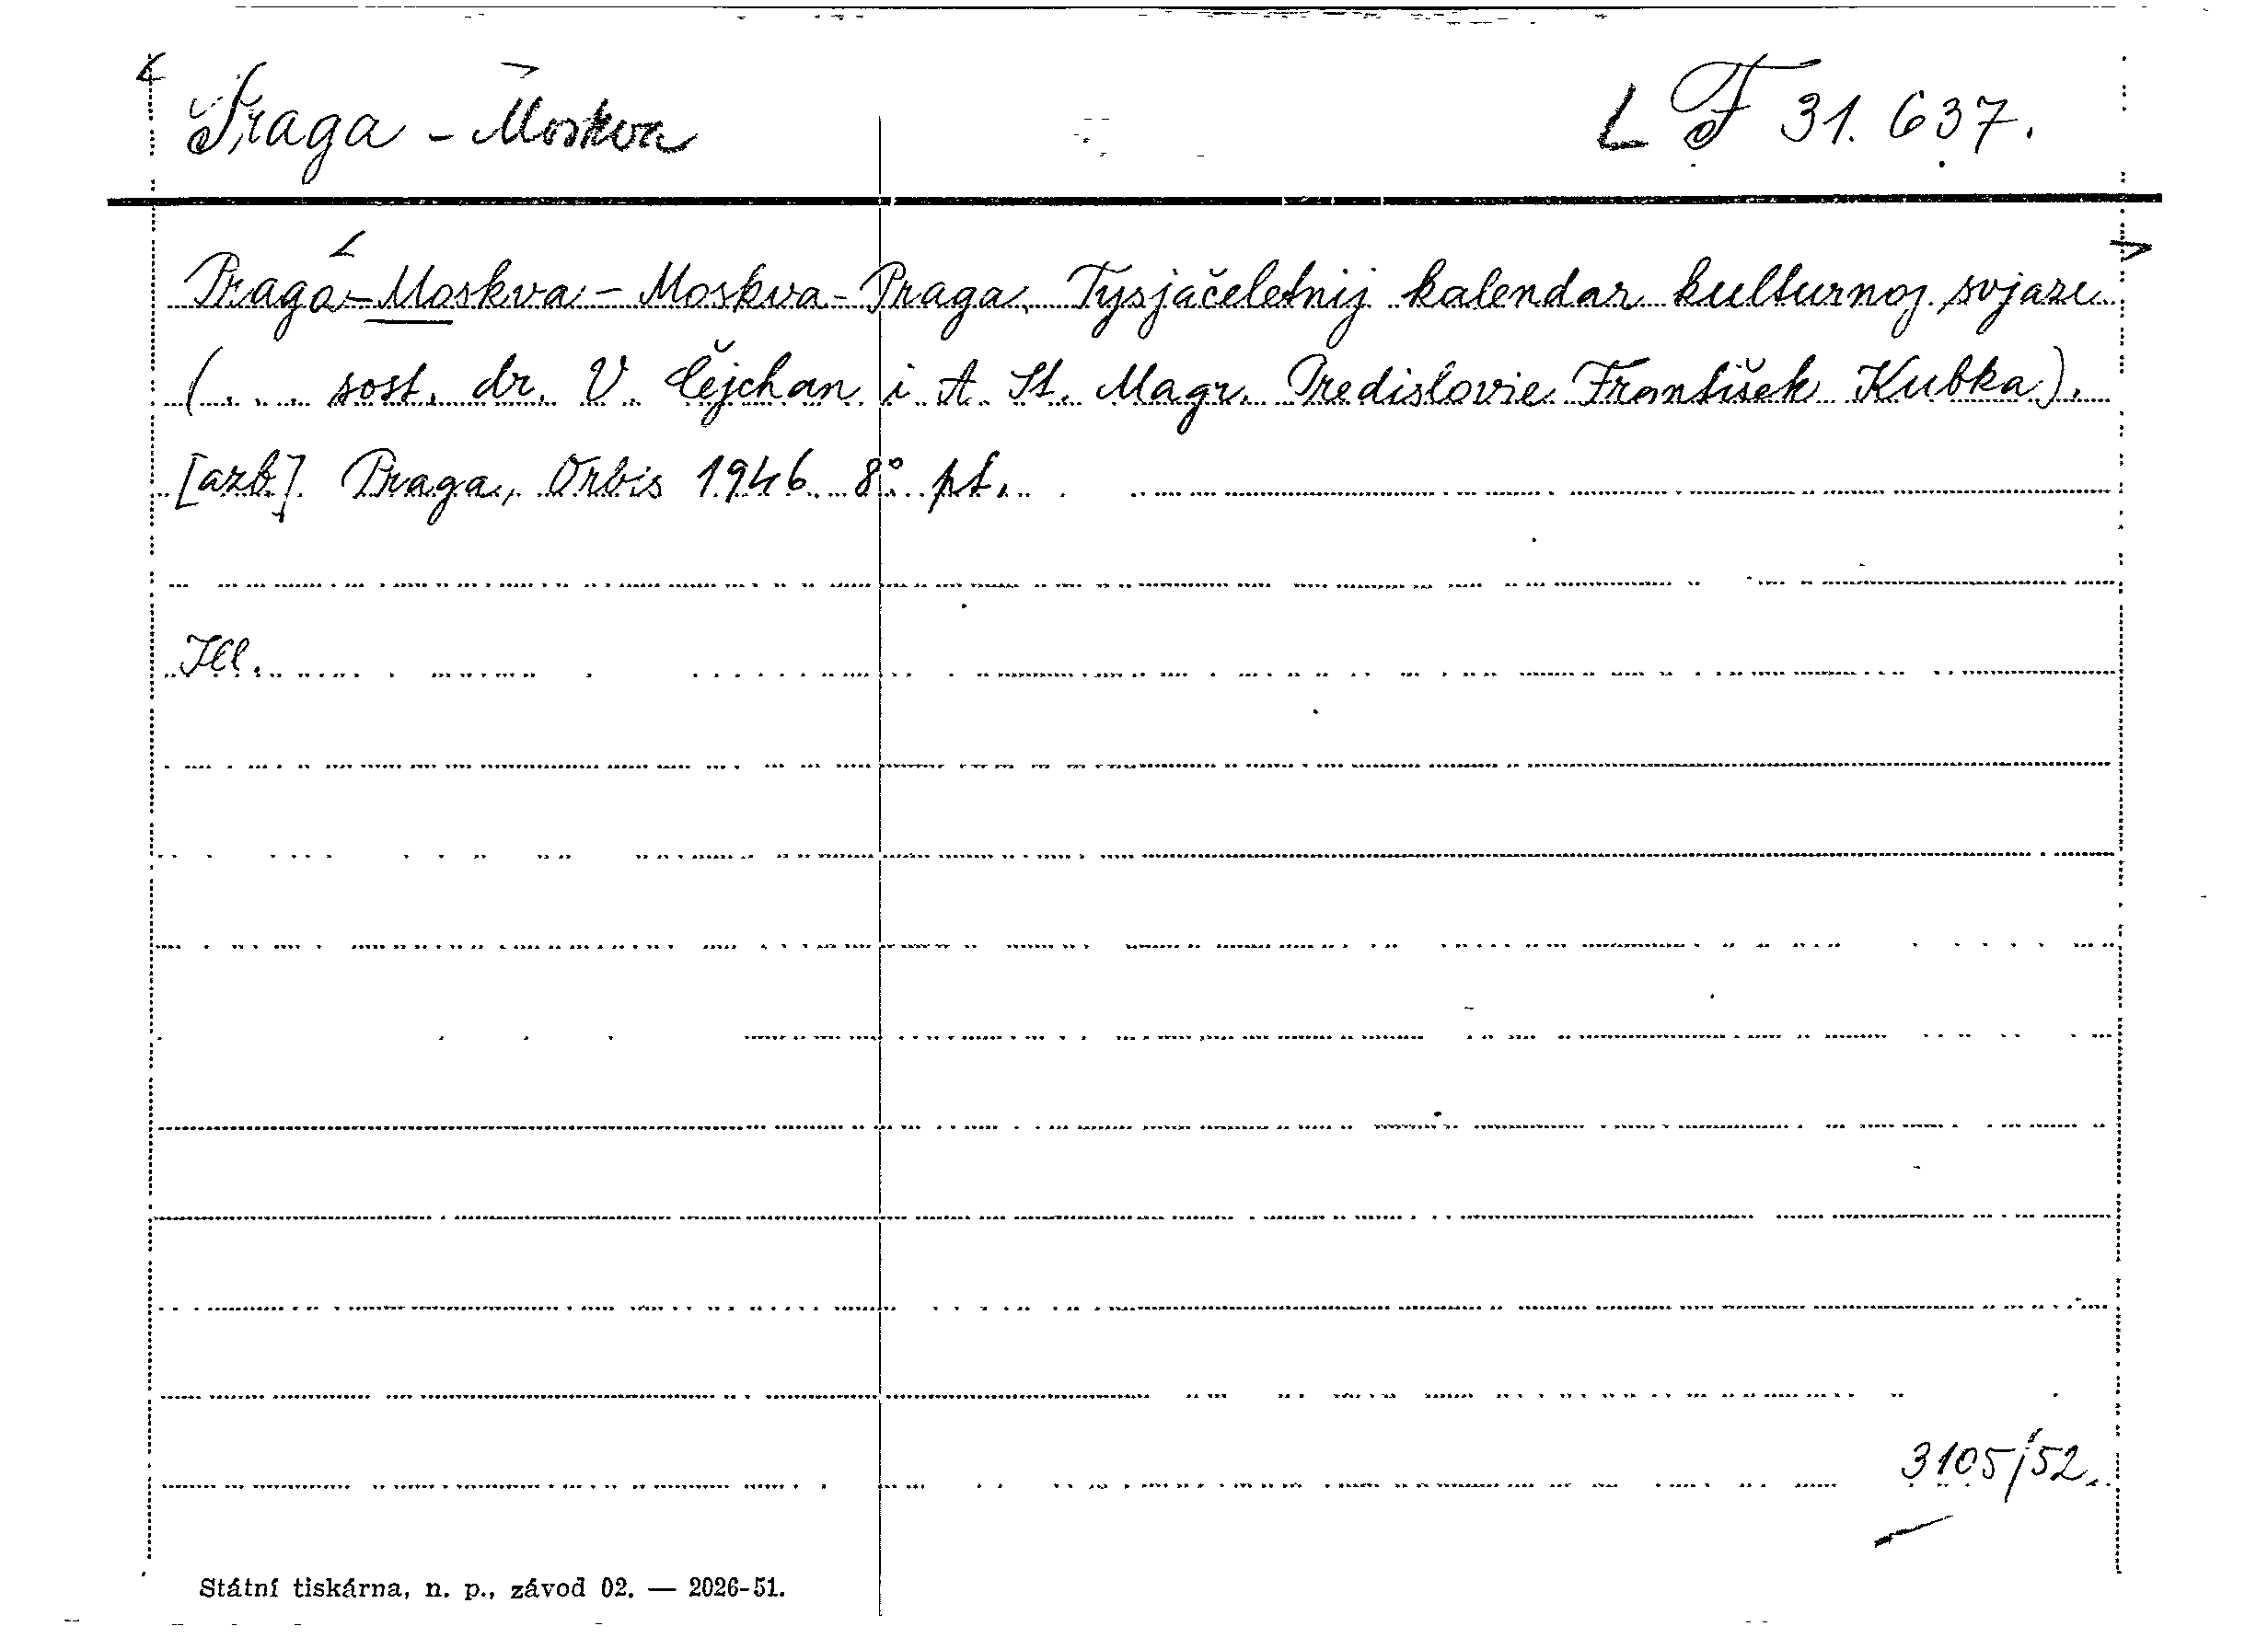 Praga - Moskva L F 31.637.
Praga-Moskva - Moskva-Praga. Tysjačeletnij kalendar kulturnoj svjazi
(... sost. dr. V. Čejchan i A. St. Magr. Predislovie František Kubka).
[azb] Praga, Orbis 1946. 8° pt.
Ill.
3105/52.
Státní tiskárna, n. p., závod 02. — 2026-51.